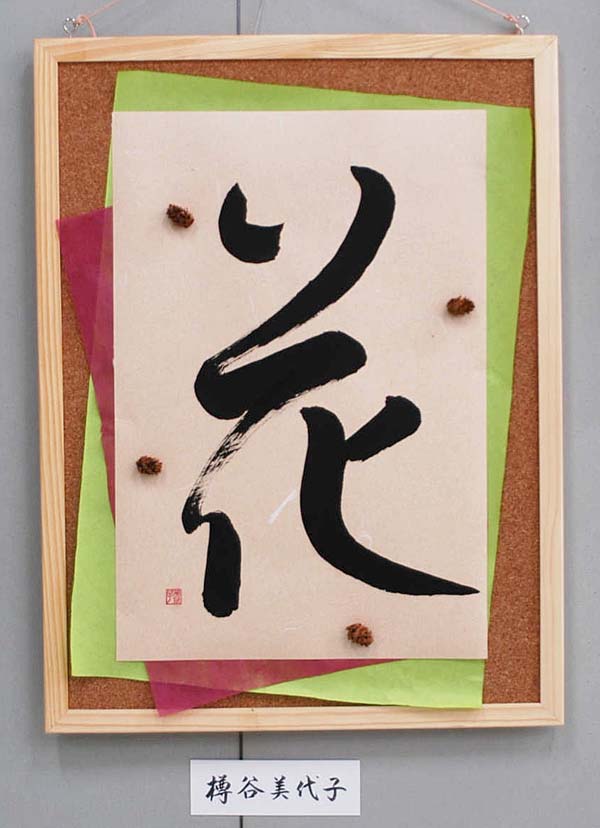 花
樽谷美代子